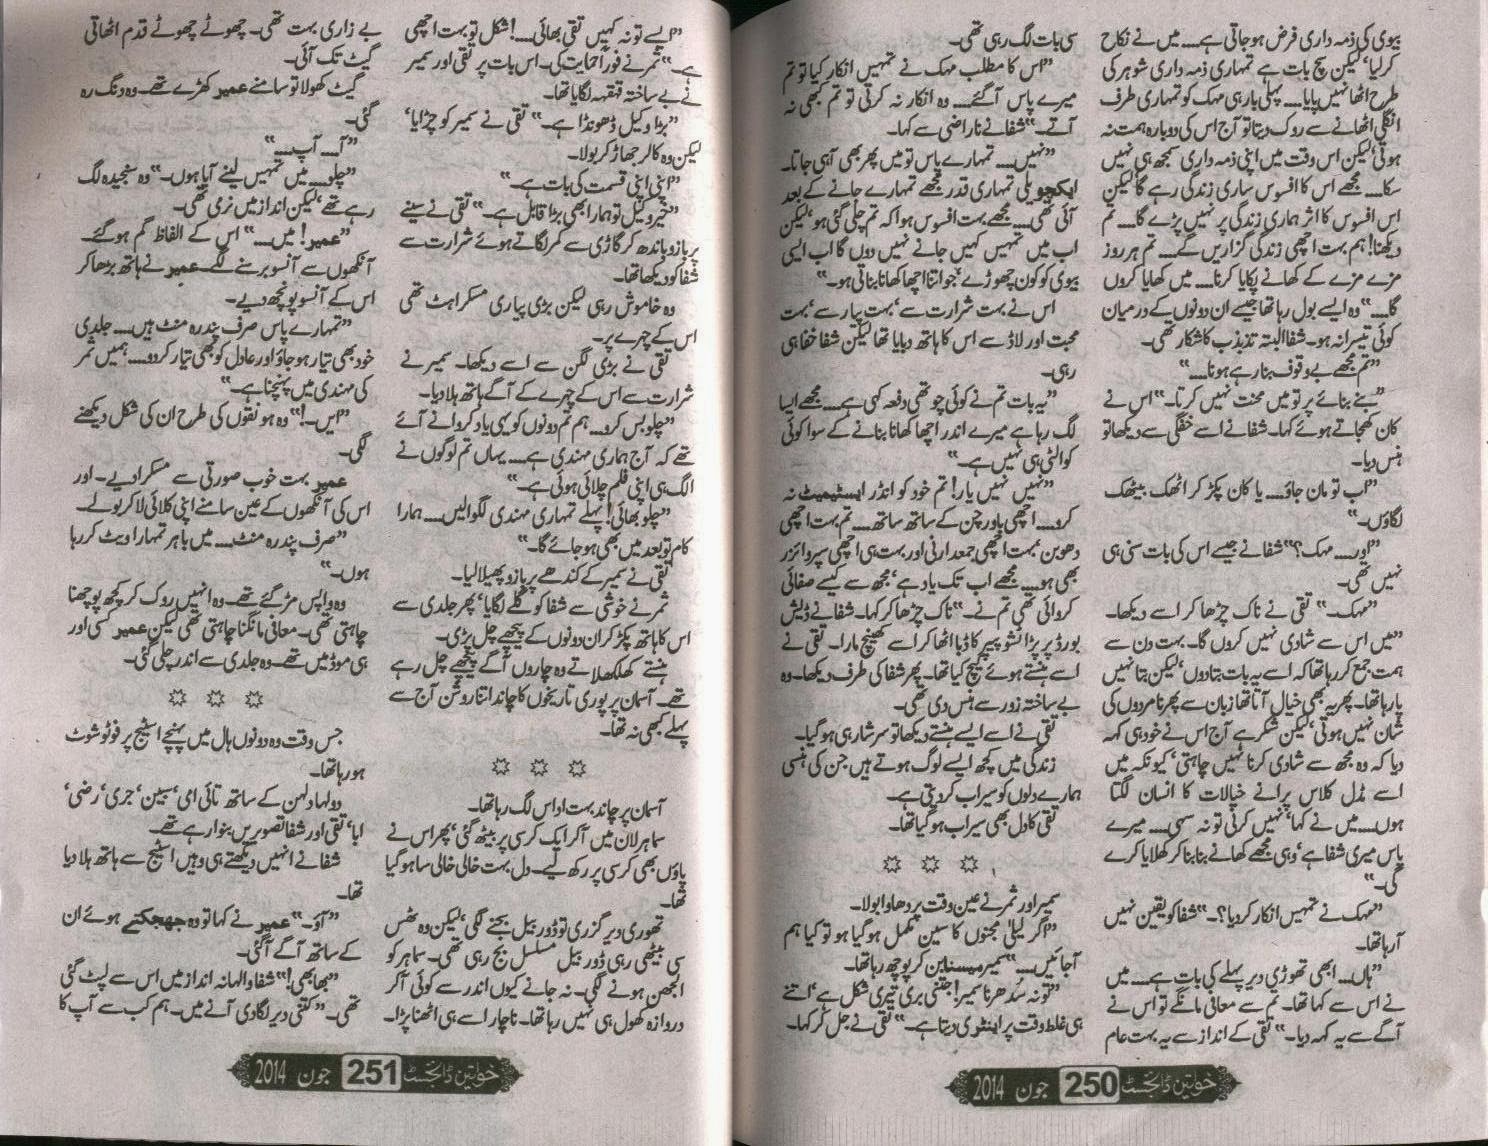 بیوی کی ذمہ داری فرض ہو جاتی ہے۔۔۔۔ میں نے نکاح
کرلیا‘ لیکن سچ بات ہے تمہاری ذمہ داری شوہر کی
طرح اٹھا نہیں پایا۔۔۔۔ پہلی بار ہی مہک کو تمہاری طرف
انگلی اٹھانے سے روک دیتا تو آج اس کی دوبارہ ہمت نہ
ہوتی‘ لیکن اس وقت میں اپنی ذمہ داری سمجھ ہی نہیں
سکا۔۔۔۔ مجھے اس کا افسوس ساری زندگی رہے گا لیکن
اس افسوس کا اثر ہماری زندگی پر نہیں پڑے گا۔۔۔۔ تم
دیکھنا! ہم بہت اچھی زندگی گزاریں گے۔۔۔۔ تم ہر روز
مزے مزے کے کھانے پکایا کرنا۔۔۔۔ میں کھایا کروں
گا۔۔۔۔“ وہ ایسے بول رہا تھا جیسے ان دونوں کے درمیان
کوئی تیسرا نہ ہو۔ شفا البتہ تذبذب کا شکار تھی۔
”تم مجھے بے وقوف بنا رہے ہونا۔۔۔۔“
”بنے بنائے پر تو میں محنت نہیں کرتا۔“ اس نے
کان کھجاتے ہوئے کہا۔ شفا نے اسے خفگی سے دیکھا تو
ہنس دیا۔
”اب تو مان جاؤ۔۔۔۔ یا کان پکڑ کر اٹھک بیٹھک
لگاؤں۔“
”اور۔۔۔۔ مہک؟“ شفا نے جیسے اس کی بات سنی ہی
نہیں تھی۔
”مہک۔“ تقی نے ناک چڑھا کر اسے دیکھا۔
”میں اس سے شادی نہیں کروں گا۔ بہت دن سے
ہمت جمع کر رہا تھا کہ اسے یہ بات بتا دوں‘ لیکن بتا نہیں
پا رہا تھا۔ پھر یہ بھی خیال آتا تھا زبان سے پھرنا مردوں کی
شان نہیں ہوتی‘ لیکن شکر ہے آج اس نے خود ہی کہہ
دیا کہ وہ مجھ سے شادی کرنا نہیں چاہتی‘ کیونکہ میں
اسے مڈل کلاس پرانے خیالات کا انسان لگتا
ہوں۔۔۔۔ میں نے کہا‘ نہیں کرنی تو نہ سہی۔۔۔۔ میرے
پاس میری شفا ہے‘ وہی مجھے کھانے بنا بنا کر کھلایا کرے
گی۔“
”مہک نے تمہیں انکار کر دیا؟۔“ شفا کو یقین نہیں
آ رہا تھا۔
”ہاں۔ ابھی تھوڑی دیر پہلے کی بات ہے۔۔۔۔ میں
نے اس سے کہا تھا۔ تم سے معافی مانگے تو اس نے
آگے سے یہ کہہ دیا۔“ تقی کے انداز سے یہ بہت عام
سی بات لگ رہی تھی۔
”اس کا مطلب مہک نے تمہیں انکار کیا تو تم
میرے پاس آ گئے۔۔۔۔ وہ انکار نہ کرتی تو تم کبھی نہ
آتے۔“ شفا نے ناراضی سے کہا۔
”نہیں۔۔۔۔ تمہارے پاس تو میں پھر بھی آ ہی جاتا۔
ایکچویلی تمہاری قدر مجھے تمہارے جانے کے بعد
آئی تھی۔۔۔۔ مجھے بہت افسوس ہوا کہ تم چلی گئی ہو‘ لیکن
اب میں تمہیں کہیں جانے نہیں دوں گا اب ایسی
بیوی کو کون چھوڑے‘ جو اتنا اچھا کھانا بناتی ہو۔“
اس نے بہت شرارت سے‘ بہت پیار سے‘ بہت
محبت اور لاڈ سے اس کا ہاتھ دبایا تھا لیکن شفا خفا ہی
رہی۔
”یہ بات تم نے کوئی چوتھی دفعہ کہی ہے۔۔۔۔ مجھے ایسا
لگ رہا ہے میرے اندر اچھا کھانا بنانے کے سوا کوئی
کوالٹی ہی نہیں ہے۔“
”نہیں نہیں یار! تم خود کو انڈر ایسٹیمیٹ نہ
کرو۔۔۔۔ اچھی باورچن کے ساتھ ساتھ۔۔۔۔ تم بہت اچھی
دھوبن‘ بہت اچھی جمعدارنی اور بہت ہی اچھی سپروائزر
بھی ہو۔۔۔۔ مجھے اب تک یاد ہے‘ مجھ سے کیسے صفائی
کروائی تھی تم نے۔“ ناک چڑھا کر کہا۔ شفا نے ڈیش
بورڈ پر پڑا ٹشو پیپر کا ڈبا اٹھا کر اسے کھینچ مارا۔ تقی نے
اسے ہنستے ہوئے کیچ کیا تھا۔ پھر شفا کی طرف دیکھا۔ وہ
بے ساختہ زور سے ہنس دی تھی۔
تقی نے اسے ایسے ہنستے دیکھا تو سرشار ہی ہو گیا۔
زندگی میں کچھ ایسے لوگ ہوتے ہیں جن کی ہنسی
ہمارے دلوں کو سیراب کر دیتی ہے۔
تقی کا دل بھی سیراب ہو گیا تھا۔
سمیر اور ثمر نے عین وقت پر دھاوا بولا۔
”اگر لیلیٰ مجنوں کا سین مکمل ہو گیا ہو تو کیا ہم
آجائیں۔۔۔۔“ سمیر میسنا بن کر پوچھ رہا تھا۔
”تو نہ سدھرنا سمیر! جتنی بری تیری شکل ہے‘ اتنے
ہی غلط وقت پر اینٹری دیتا ہے۔“ تقی نے جل کر کہا۔
خواتین ڈائجسٹ 250 جون 2014
”ایسے تو نہ کہیں تقی بھائی۔۔۔۔! شکل تو بہت اچھی
ہے۔“ ثمر نے فوراً حمایت کی۔ اس بات پر تقی اور سمیر
نے بے ساختہ قہقہہ لگایا تھا۔
”بڑا وکیل ڈھونڈا ہے۔“ تقی نے سمیر کو چڑایا‘
لیکن وہ کالر جھاڑ کر بولا۔
”اپنی اپنی قسمت کی بات ہے۔“
”خیر وکیل تو ہمارا بھی بڑا قابل ہے۔“ تقی نے سینے
پر بازو باندھ کر گاڑی سے کمر لگاتے ہوئے شرارت سے
شفا کو دیکھا تھا۔
وہ خاموش رہی لیکن بڑی پیاری مسکراہٹ تھی
اس کے چہرے پر۔
تقی نے بڑی لگن سے اسے دیکھا۔ سمیر نے
شرارت سے اس کے چہرے کے آگے ہاتھ ہلا دیا۔
”چلو بس کرو۔۔۔۔ ہم تم دونوں کو یہی یاد کروانے آئے
تھے کہ آج ہماری مہندی ہے۔۔۔۔ یہاں تم لوگوں نے
الگ ہی اپنی فلم چلائی ہوئی ہے۔“
”چلو بھائی! پہلے تمہاری مہندی لگوالیں۔۔۔۔ ہمارا
کام تو بعد میں بھی ہو جائے گا۔“
تقی نے سمیر کے کندھے پر بازو پھیلا لیا۔
ثمر نے خوشی سے شفا کو گلے لگایا‘ پھر جلدی سے
اس کا ہاتھ پکڑ کر ان دونوں کے پیچھے چل پڑی۔
ہنستے کھلکھلاتے وہ چاروں آگے پیچھے چل رہے
تھے۔ آسمان پر پوری تاریخوں کا چاند اتنا روشن آج سے
پہلے کبھی نہ تھا۔
آسمان پر چاند بہت اداس لگ رہا تھا۔
ساہر لان میں آ کر ایک کرسی پر بیٹھ گئی‘ پھر اس نے
پاؤں بھی کرسی پر رکھ لیے۔ دل بہت خالی خالی سا ہو گیا
تھا۔
تھوڑی دیر گزری تو ڈور بیل بجنے لگی‘ لیکن وہ ٹھس
سی بیٹھی رہی ڈور بیل مسلسل بج رہی تھی۔ ساہر کو
الجھن ہونے لگی۔ نہ جانے کیوں اندر سے کوئی آ کر
دروازہ کھول ہی نہیں رہا تھا۔ ناچار اسے ہی اٹھنا پڑا۔
بے زاری بہت تھی۔ چھوٹے چھوٹے قدم اٹھاتی
گیٹ تک آئی۔
گیٹ کھولا تو سامنے عمیر کھڑے تھے۔ وہ دنگ رہ
گئی۔
”آ۔۔۔۔ آپ۔۔۔۔“
”چلو۔۔۔۔ میں تمہیں لینے آیا ہوں۔“ وہ سنجیدہ لگ
رہے تھے‘ لیکن انداز میں نرمی تھی۔
”عمیر! میں۔۔۔۔“ اس کے الفاظ گم ہو گئے۔
آنکھوں سے آنسو برسنے لگے۔ عمیر نے ہاتھ بڑھا کر
اس کے آنسو پونچھ دیے۔
”تمہارے پاس صرف پندرہ منٹ ہیں۔۔۔۔ جلدی
خود بھی تیار ہو جاؤ اور عادل کو بھی تیار کر دو۔۔۔۔ ہمیں ثمر
کی مہندی میں پہنچنا ہے۔“
”ایں۔!“ وہ ہونقوں کی طرح ان کی شکل دیکھنے
لگی۔
عمیر بہت خوب صورتی سے مسکرا دیے۔ اور
اس کی آنکھوں کے عین سامنے اپنی کلائی لا کر بولے۔
”صرف پندرہ منٹ۔۔۔۔ میں باہر تمہارا ویٹ کر رہا
ہوں۔“
وہ واپس مڑ گئے تھے۔ وہ انہیں روک کر کچھ پوچھنا
چاہتی تھی۔ معافی مانگنا چاہتی تھی لیکن عمیر کسی اور
ہی موڈ میں تھے۔ وہ جلدی سے اندر چلی گئی۔
جس وقت وہ دونوں ہال میں پہنچے اسٹیج پر فوٹو شوٹ
ہو رہا تھا۔
دولہا دلہن کے ساتھ تائی امی‘ سبین‘ جری‘ رضی‘
ابا‘ تقی اور شفا تصویریں بنوا رہے تھے۔
شفا نے انہیں دیکھتے ہی وہیں اسٹیج سے ہاتھ ہلا دیا
تھا۔
”آؤ۔“ عمیر نے کہا تو وہ جھجکتے ہوئے ان
کے ساتھ آگے آ گئی۔
”بھابھی!“ شفا والہانہ انداز میں اس سے لپٹ گئی
تھی۔ ”کتنی دیر لگا دی آنے میں۔ ہم کب سے آپ کا
خواتین ڈائجسٹ 251 جون 2014